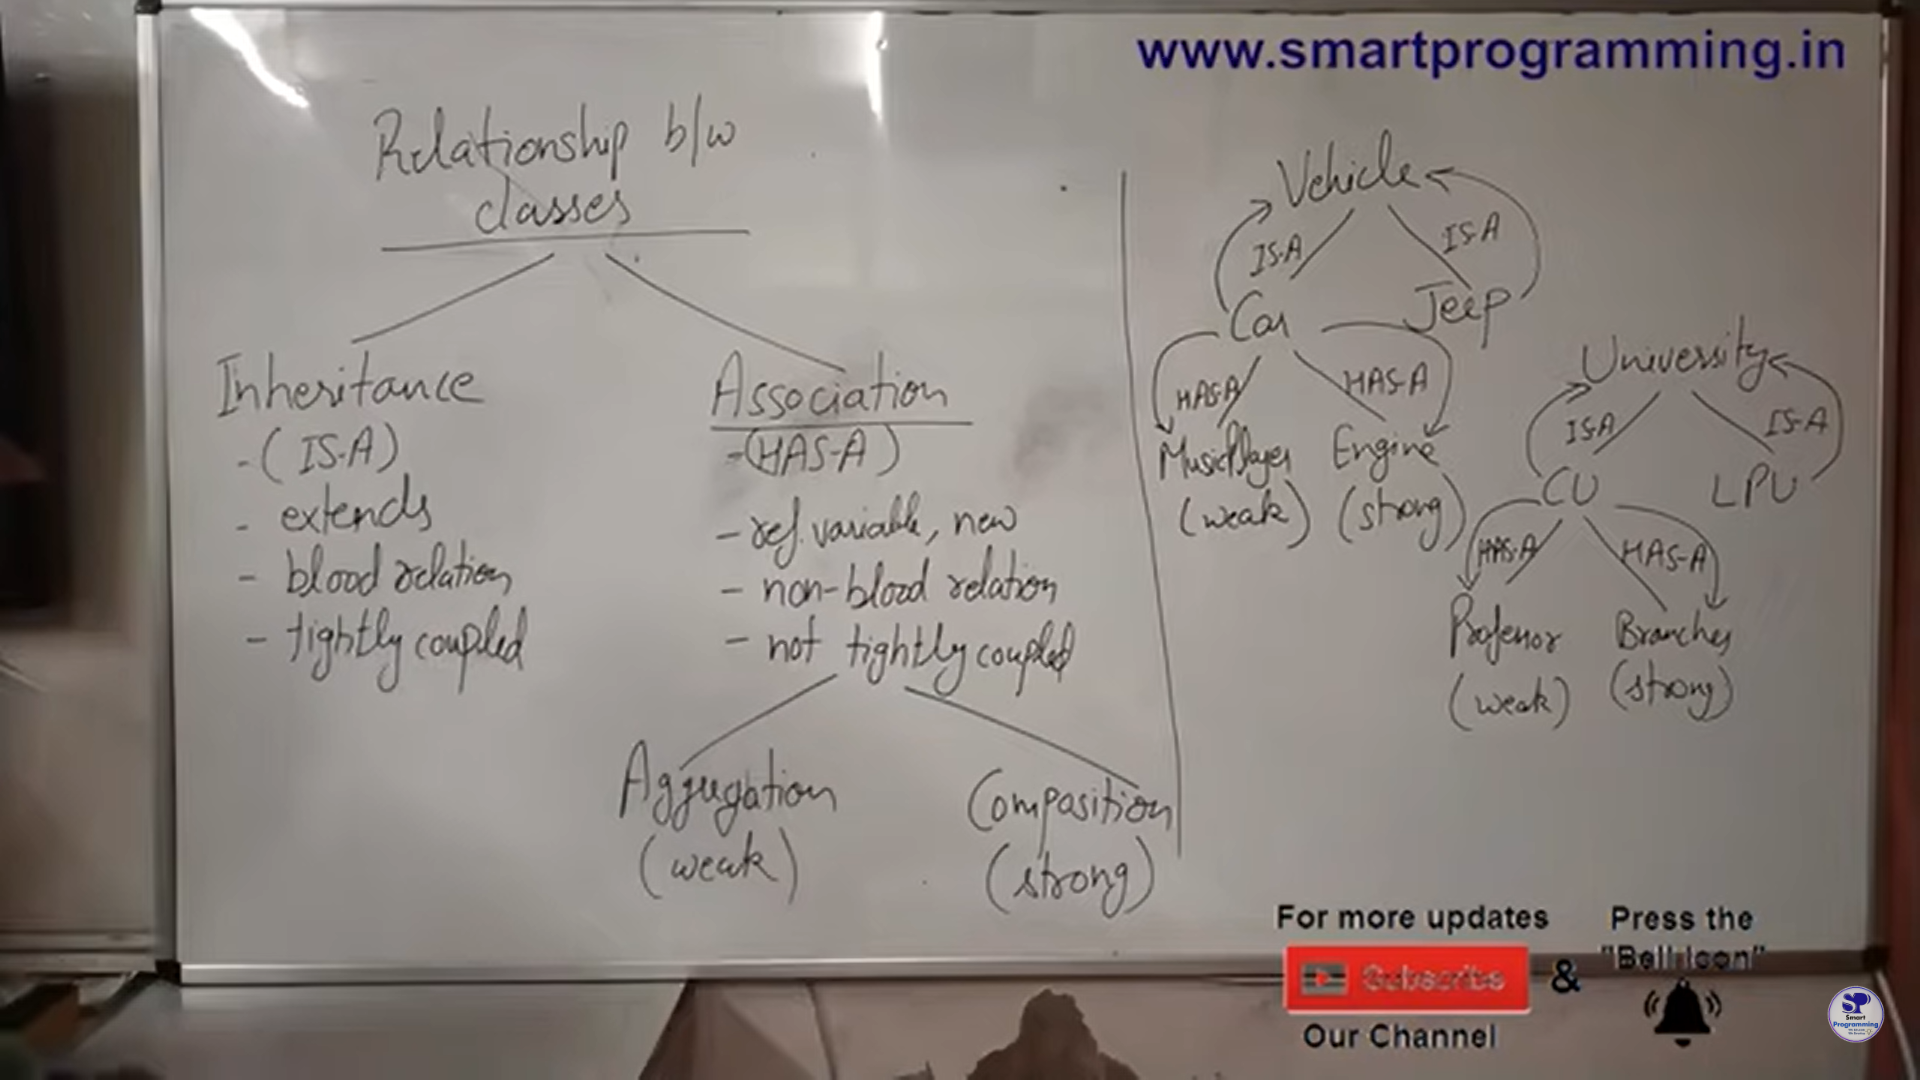 www.smartprogramming.in
Relationship b/w
classes
Inheritance
- (IS-A)
- extends
- blood relation
- tightly coupled
Association
- (HAS-A)
- ref. variable, new
- non-blood relation
- not tightly coupled
Aggregation
(weak)
Composition
(strong)
Vehicle
IS-A
IS-A
Car
Jeep
HAS-A
HAS-A
MusicPlayer
(weak)
Engine
(strong)
University
IS-A
IS-A
CU
LPU
HAS-A
HAS-A
Professor
(weak)
Branches
(strong)
For more updates
Subscribe
Our Channel
&
Press the
"Bell Icon"
SP
Smart
Programming